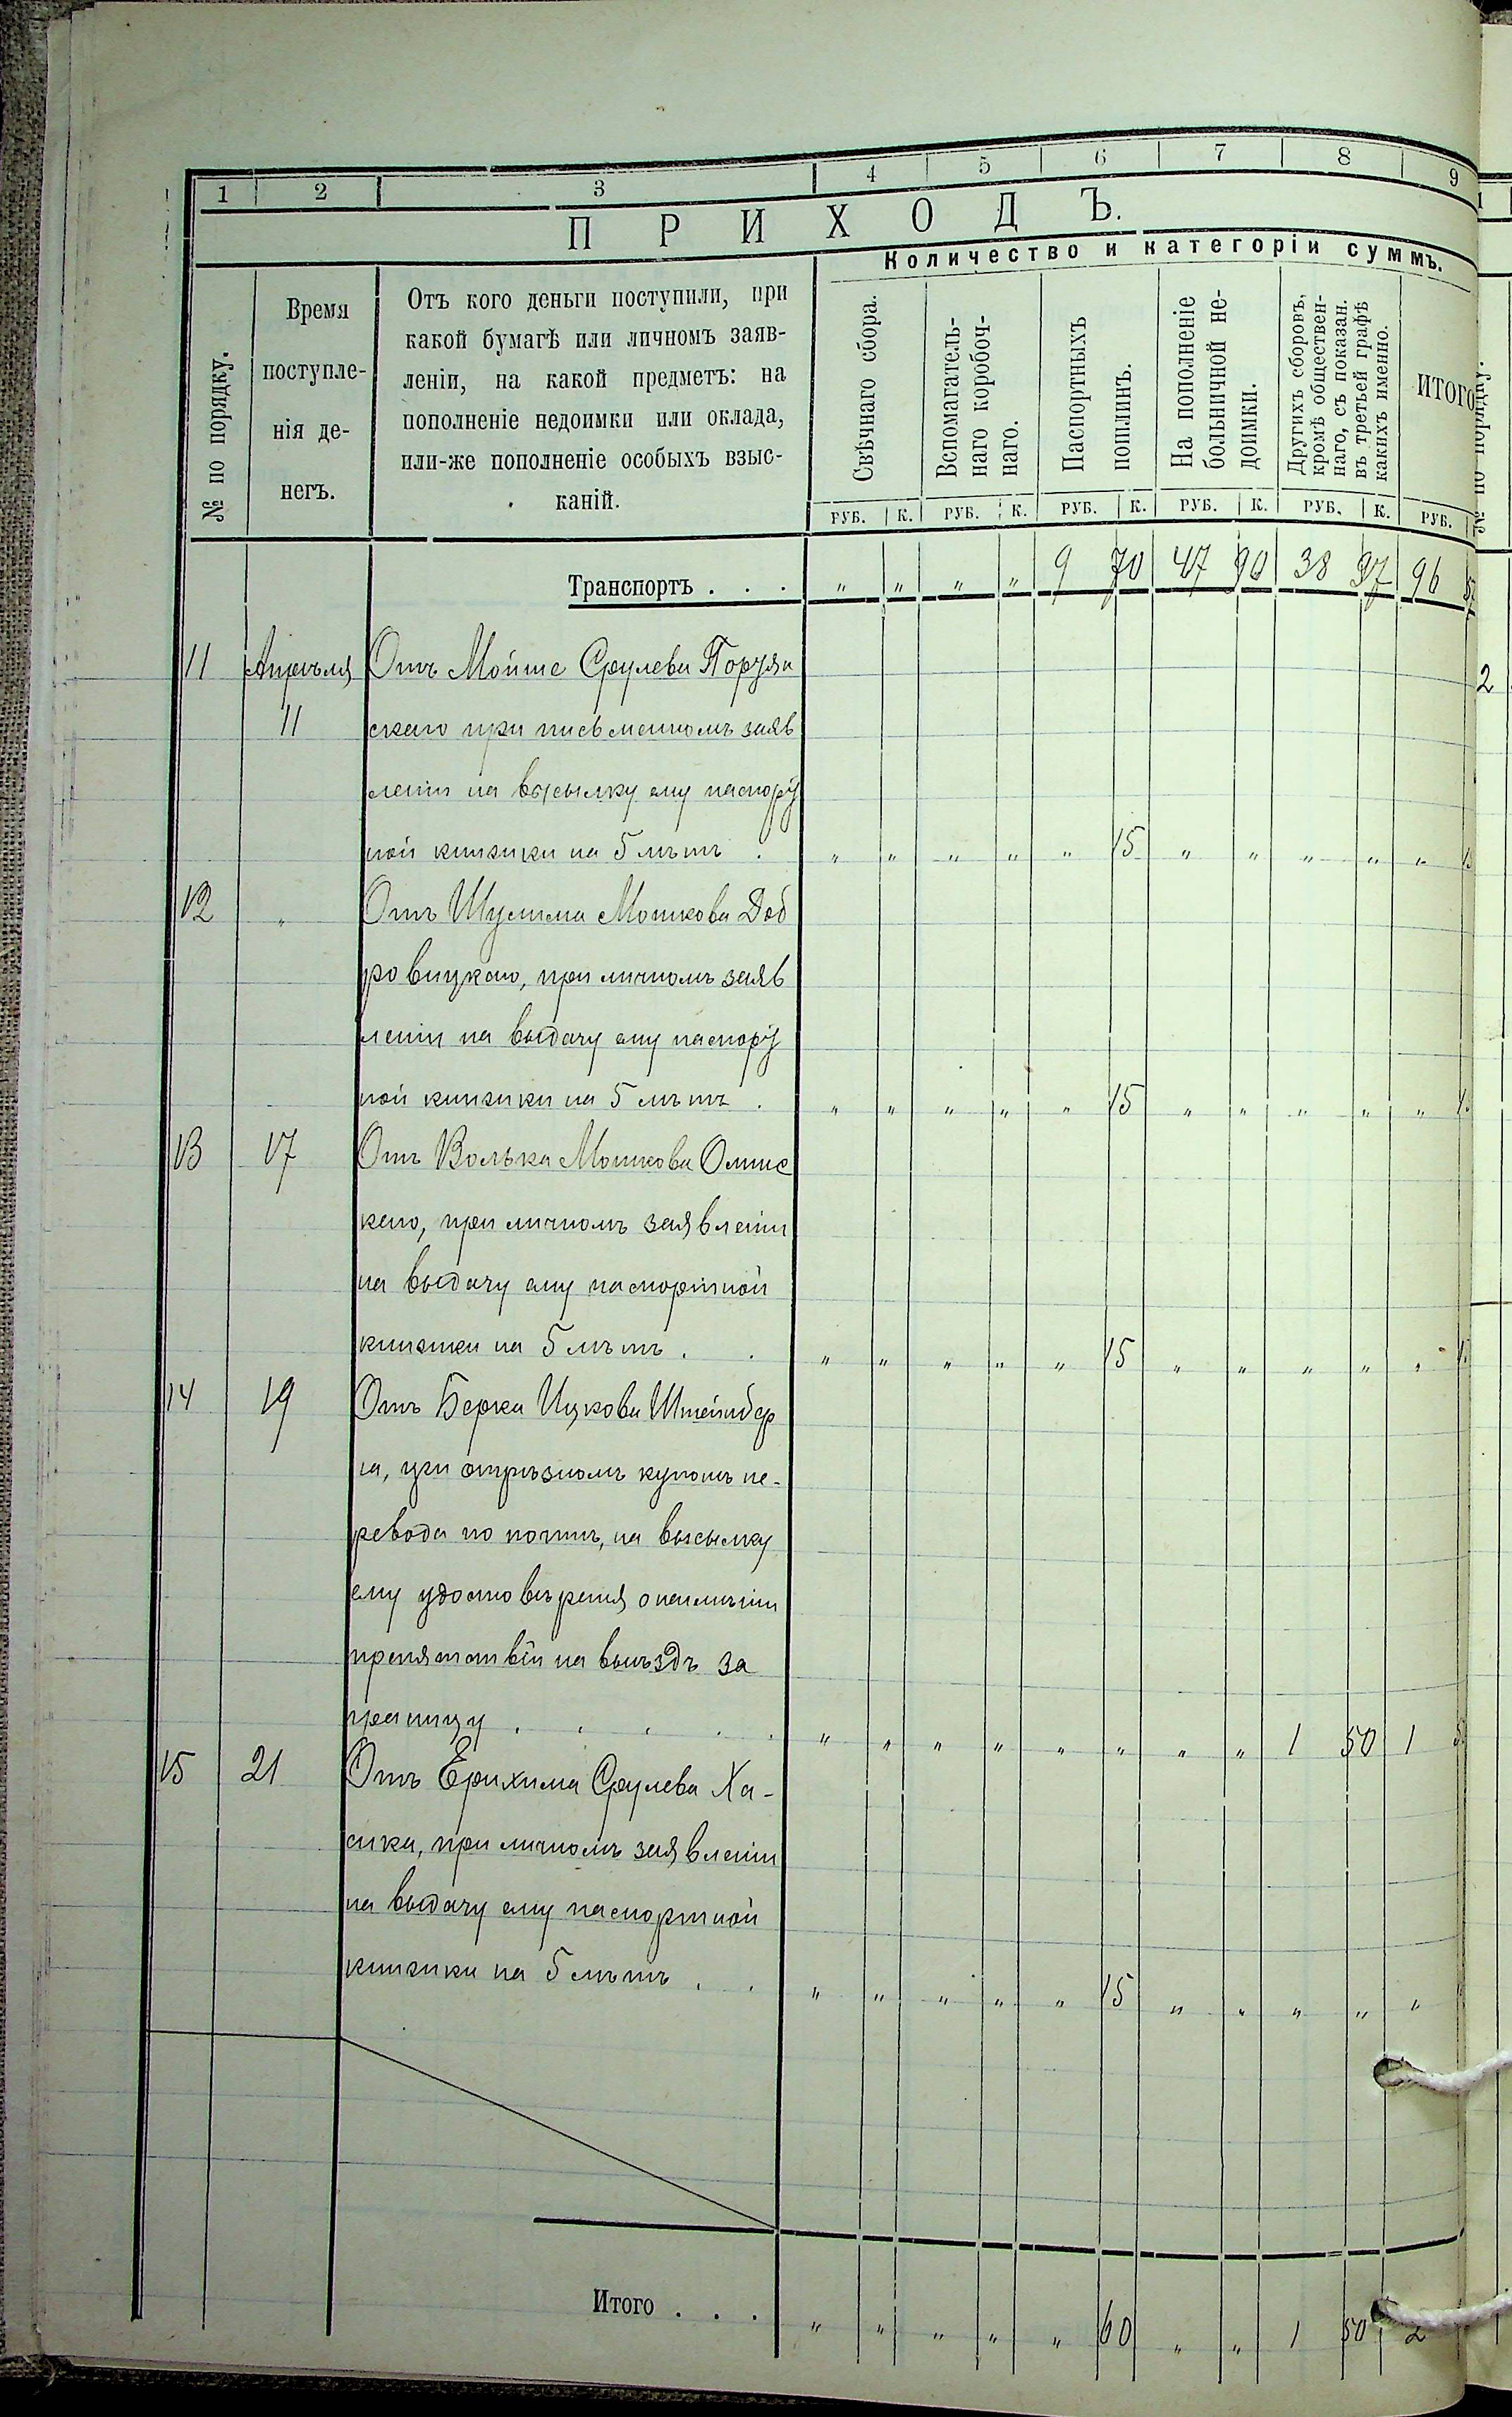 1 2 3 4 5 6 7 8 9
ПРИХОДЪ.
Количество и категоріи суммъ.
№ по порядку.
Время
поступле-
нія де-
негъ.
Отъ кого деньги поступили, при
какой бумагѣ или личномъ заяв-
леніи, на какой предметъ: на
пополненіе недоимки или оклада,
или-же пополненіе особыхъ взыс-
каній.
Свѣчнаго сбора.
Вспомагатель-
наго коробоч-
наго.
Паспортныхъ
пошлинъ.
На пополненіе
больничной не-
доимки.
Другихъ сборовъ,
кромѣ обществен-
наго, съ показан.
въ третьей графѣ
какихъ именно.
ИТОГО
РУБ. К. РУБ. К. РУБ. К. РУБ. К. РУБ. К. РУБ.
Транспортъ . . . " " " " 9 70 47 90 38 97 96 57
11 Апрѣля Отъ Мойше Срулева
11 скаго при письменномъ заяв
леніи на высылку ему паспорт
ной книжки на 5 лѣтъ . " " " " " 15 " " " " "
12 " Отъ Шулима Мошкова Доб
ровицкаго, при личномъ заяв
леніи на выдачу ему паспорт
ной книжки на 5 лѣтъ . " " " " " 15 " " " " "
13 17 Отъ Волька Мошкова
каго, при личномъ заявленіи
на выдачу ему паспортной
книжки на 5 лѣтъ . . " " " " " 15 " " " " "
14 19 Отъ Берка Ицкова Штейнбер
га, при отрѣзномъ купонѣ пе-
ревода по почтѣ, на высылку
ему удостовѣренія о неимѣніи
препятствій на выѣздъ за
границу . . . . . " " " " " " " " 1 50 1
15 21 Отъ Ерихима Срулева Ха-
сика, при личномъ заявленіи
на выдачу ему паспортной
книжки на 5 лѣтъ . . " " " " " 15 " " " " "
Итого . . . " " " " " 60 " " 1 50 2